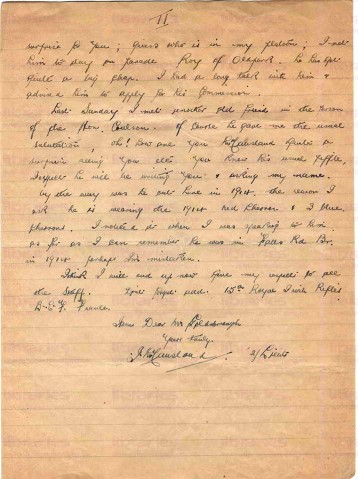 II
surprise for you; Guess who is in my platoon; I met
him to day on parade Roy of Oldpark. he has got
quite a big chap. I had a long talk with him &
advised him to apply for his Commission.
Last Sunday I met another old friend in the person
of the Hon. Coulson. of course he gave me the usual
salutation, oh! how are you McCausland quite a
surprise seeing you etc. You know his usual
I expect he will be writing you & asking my name.
by the way was he out here in 1914. the reason I
ask he is wearing the 1914 red chevron & 3 blue
chevrons. I noticed it when I was speaking to him
as far as I can remember he was in Falls Rd Br.
in 1914 perhaps his mistaken.
I think I will end up now give my respects to all
the Staff. Don't forget add. 15th Royal Irish Rifles
B.E.F. France.
Dear Mr Goldsbrough
Yours Truly.
2/Lieut